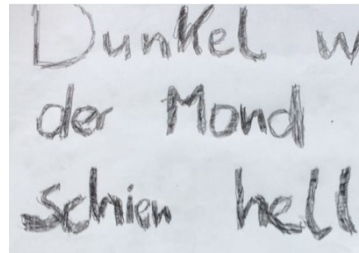 Dunkel w
der Mond
schien hell